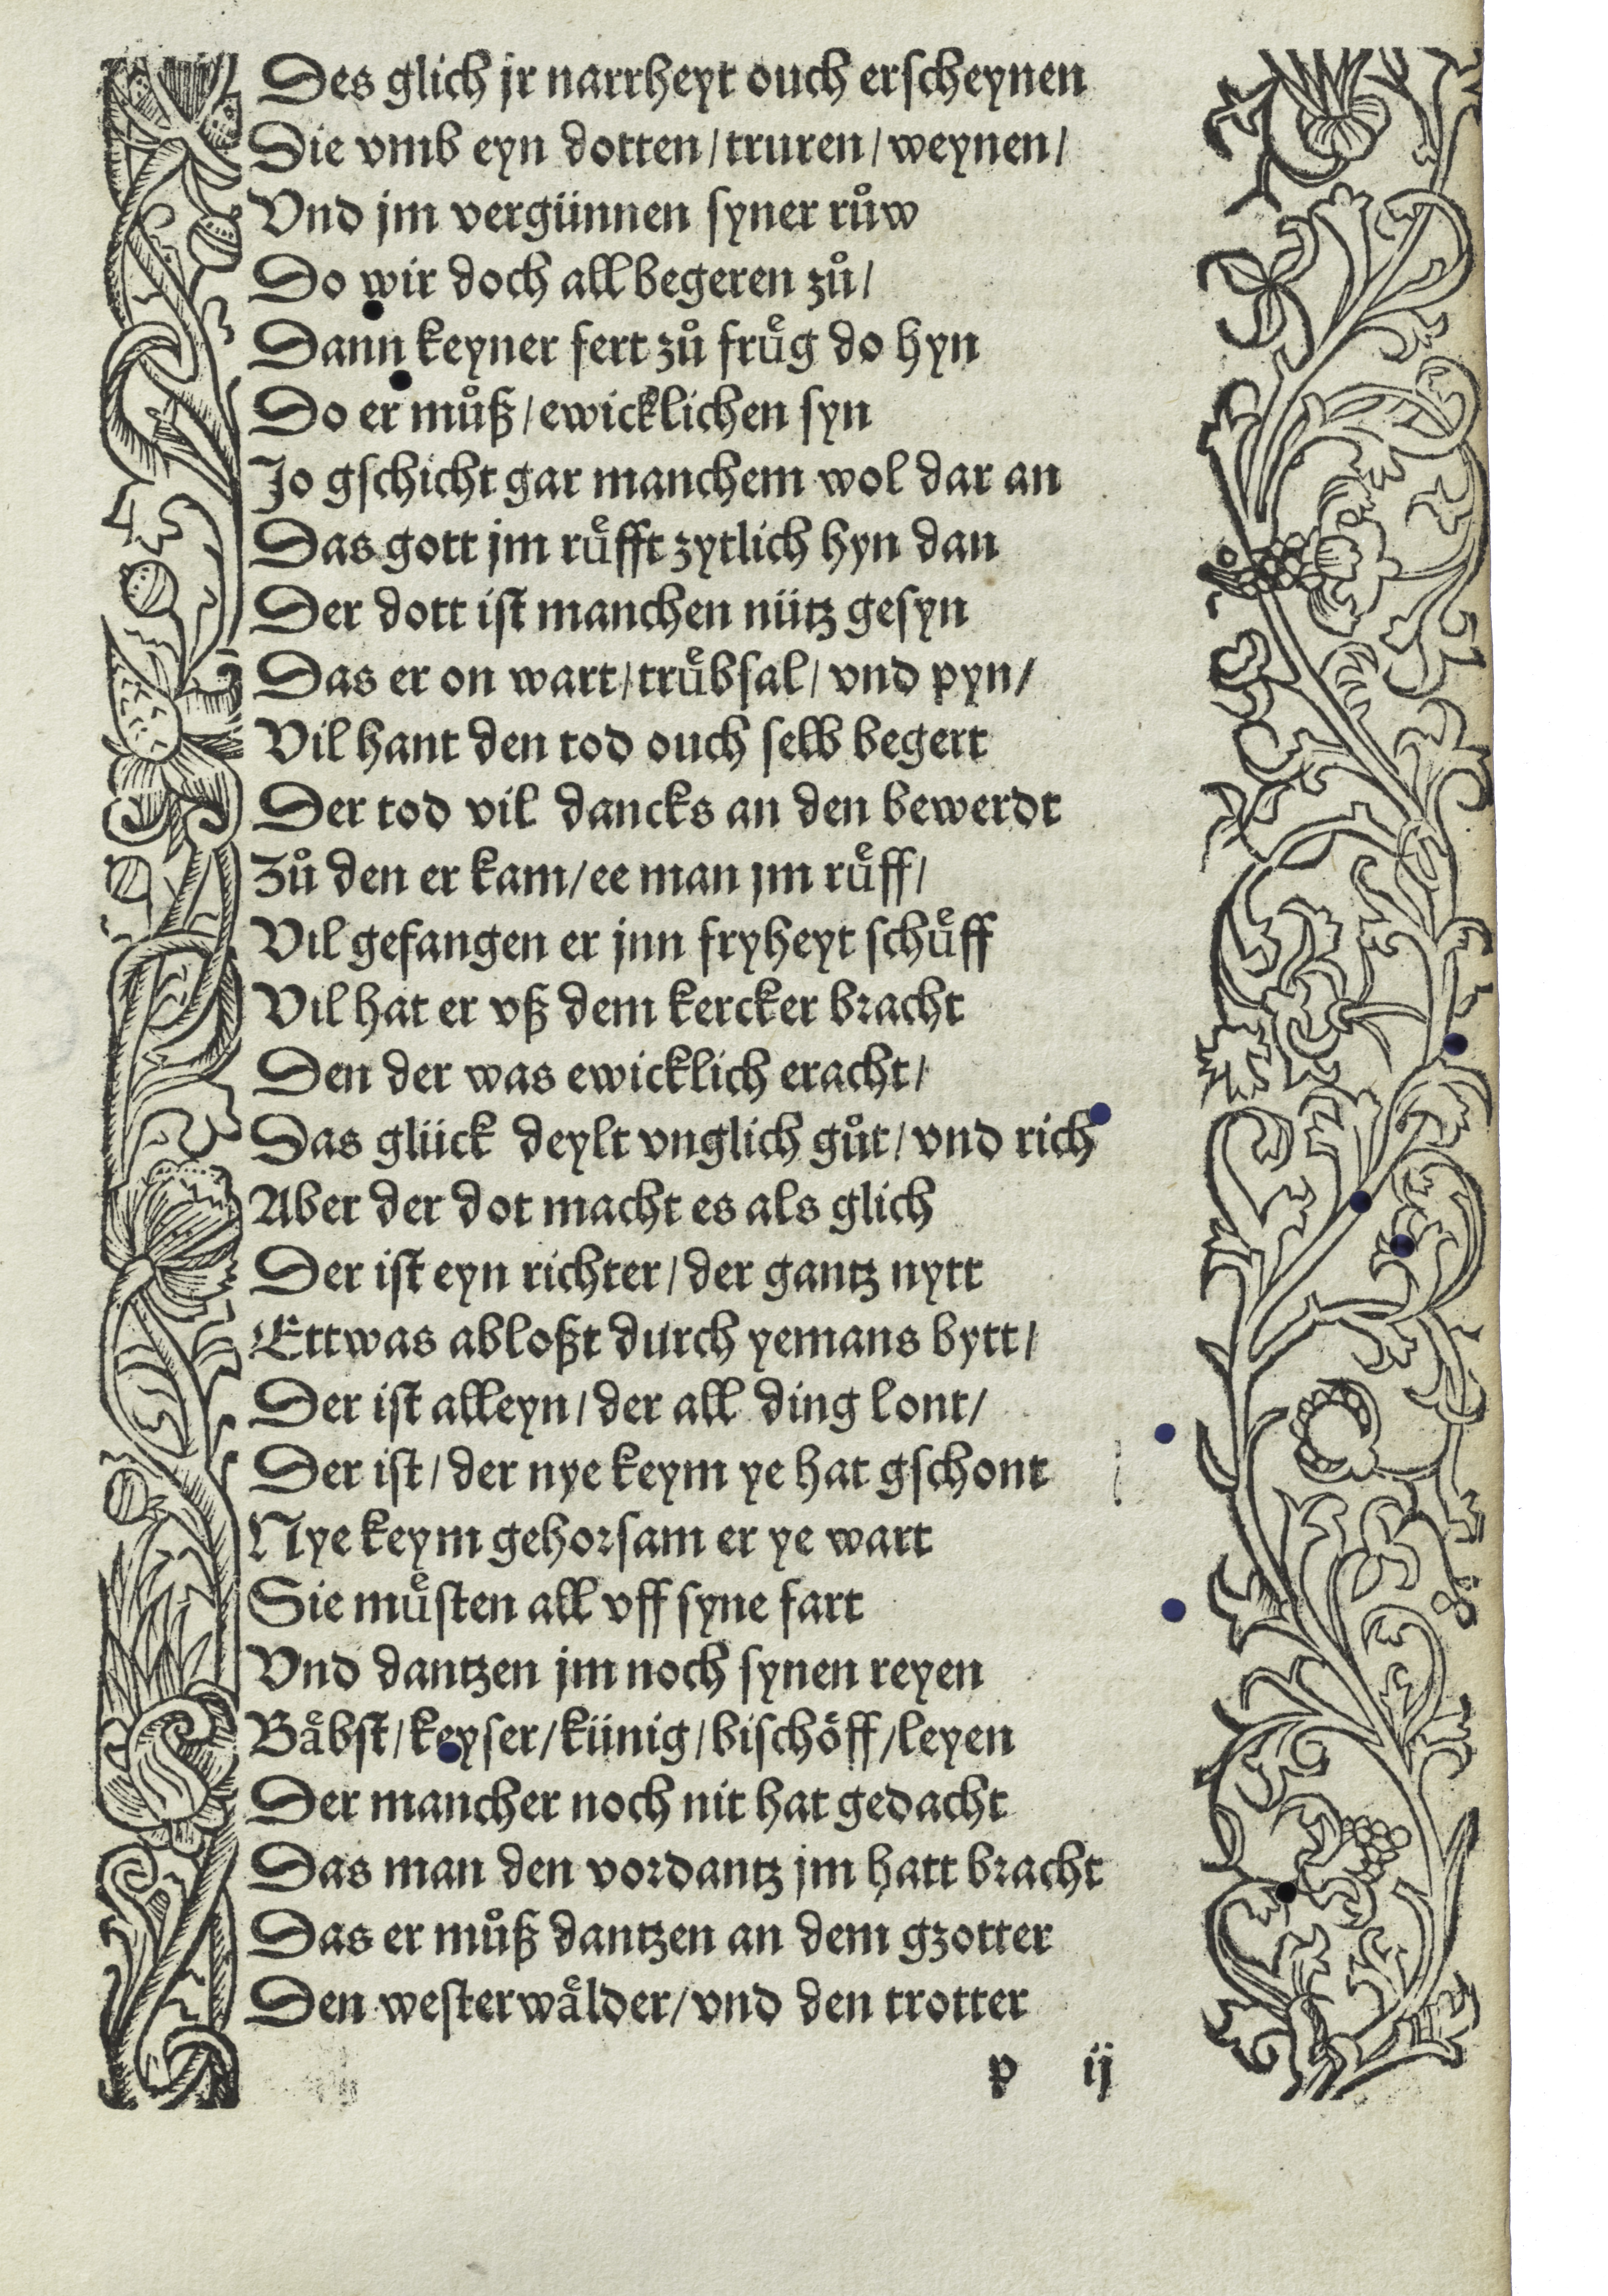 Des glich jr narrheyt ouch erscheynen
Die vmb eyn dotten / truren / weynen /
Vnd jm vergünnen syner ruͦw
Do wir doch all begeren zuͦ /
Dann keyner fert zuͦ fruͤg do hyn
Do er muͦß / ewicklichen syn
Jo gschicht gar manchem wol dar an
Das gott jm ruͤfft zytlich hyn dan
Der dott ist manchen nütz gesyn
Das er on wart / truͤbsal / vnd pyn /
Vil hant den tod ouch selb begert
Der tod vil dancks an den bewerdt
Zuͦ den er kam / ee man jm ruͤff /
Vil gefangen er jnn fryheyt schuͤff
Vil hat er vß dem kercker bracht
Den der was ewicklich eracht /
Das glück deylt vnglich guͦt / vnd rich
Aber der dot macht es als glich
Der ist eyn richter / der gantz nytt
Ettwas abloßt durch yemans bytt /
Der ist alleyn / der all ding lont /
Der ist / der nye keym ye hat gschont
Nye keym gehorsam er ye wart
Sie muͤsten all vff syne fart
Vnd dantzen jm noch synen reyen
Baͤbst / keyser / künig / bischoͤff / leyen
Der mancher noch nit hat gedacht
Das man den vordantz jm hatt bracht
Das er muͦß dantzen an dem gzotter
Den westerwaͤlder / vnd den trotter
p ij